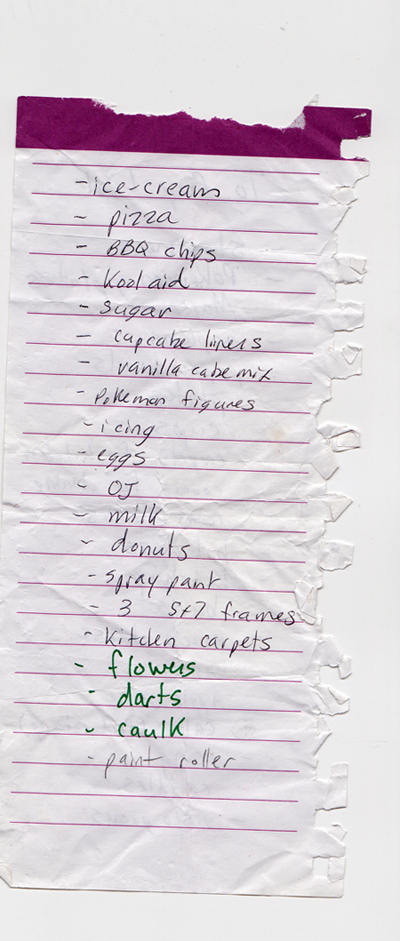 - ice-cream
- pizza
- BBQ chips
- Kool aid
- sugar
- cupcake liners
- vanilla cake mix
- Pokemon figures
- icing
- eggs
- OJ
- milk
- donuts
- spray paint
- 3 5x7 frames
- Kitchen carpets
- flowers
- darts
- caulk
- paint roller